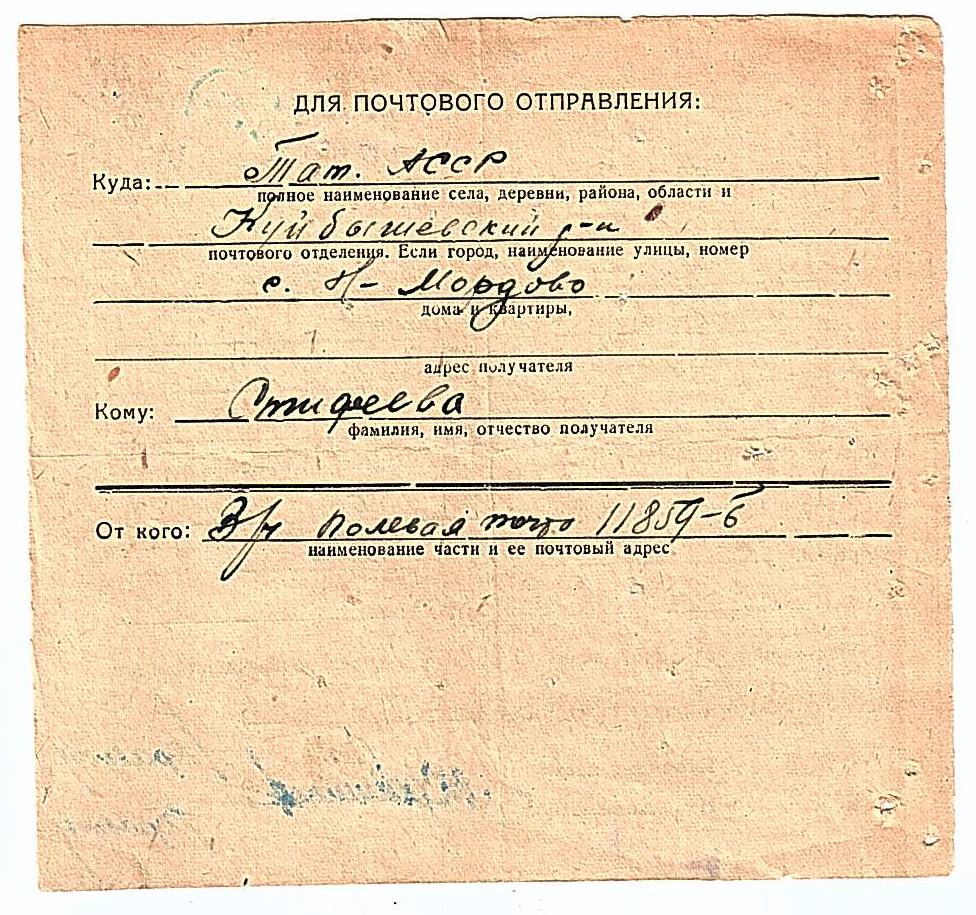 ДЛЯ ПОЧТОВОГО ОТПРАВЛЕНИЯ:
Куда: Тат. АССР
полное наименование села, деревни, района, области и
Куйбышевский р-н
почтового отделения. Если город, наименование улицы, номер
с. Н-Мордово
дома и квартиры,
адрес получателя
Кому: Стифеева
фамилия, имя, отчество получателя
От кого: Полевая почта 11859-Б
наименование части и ее почтовый адрес